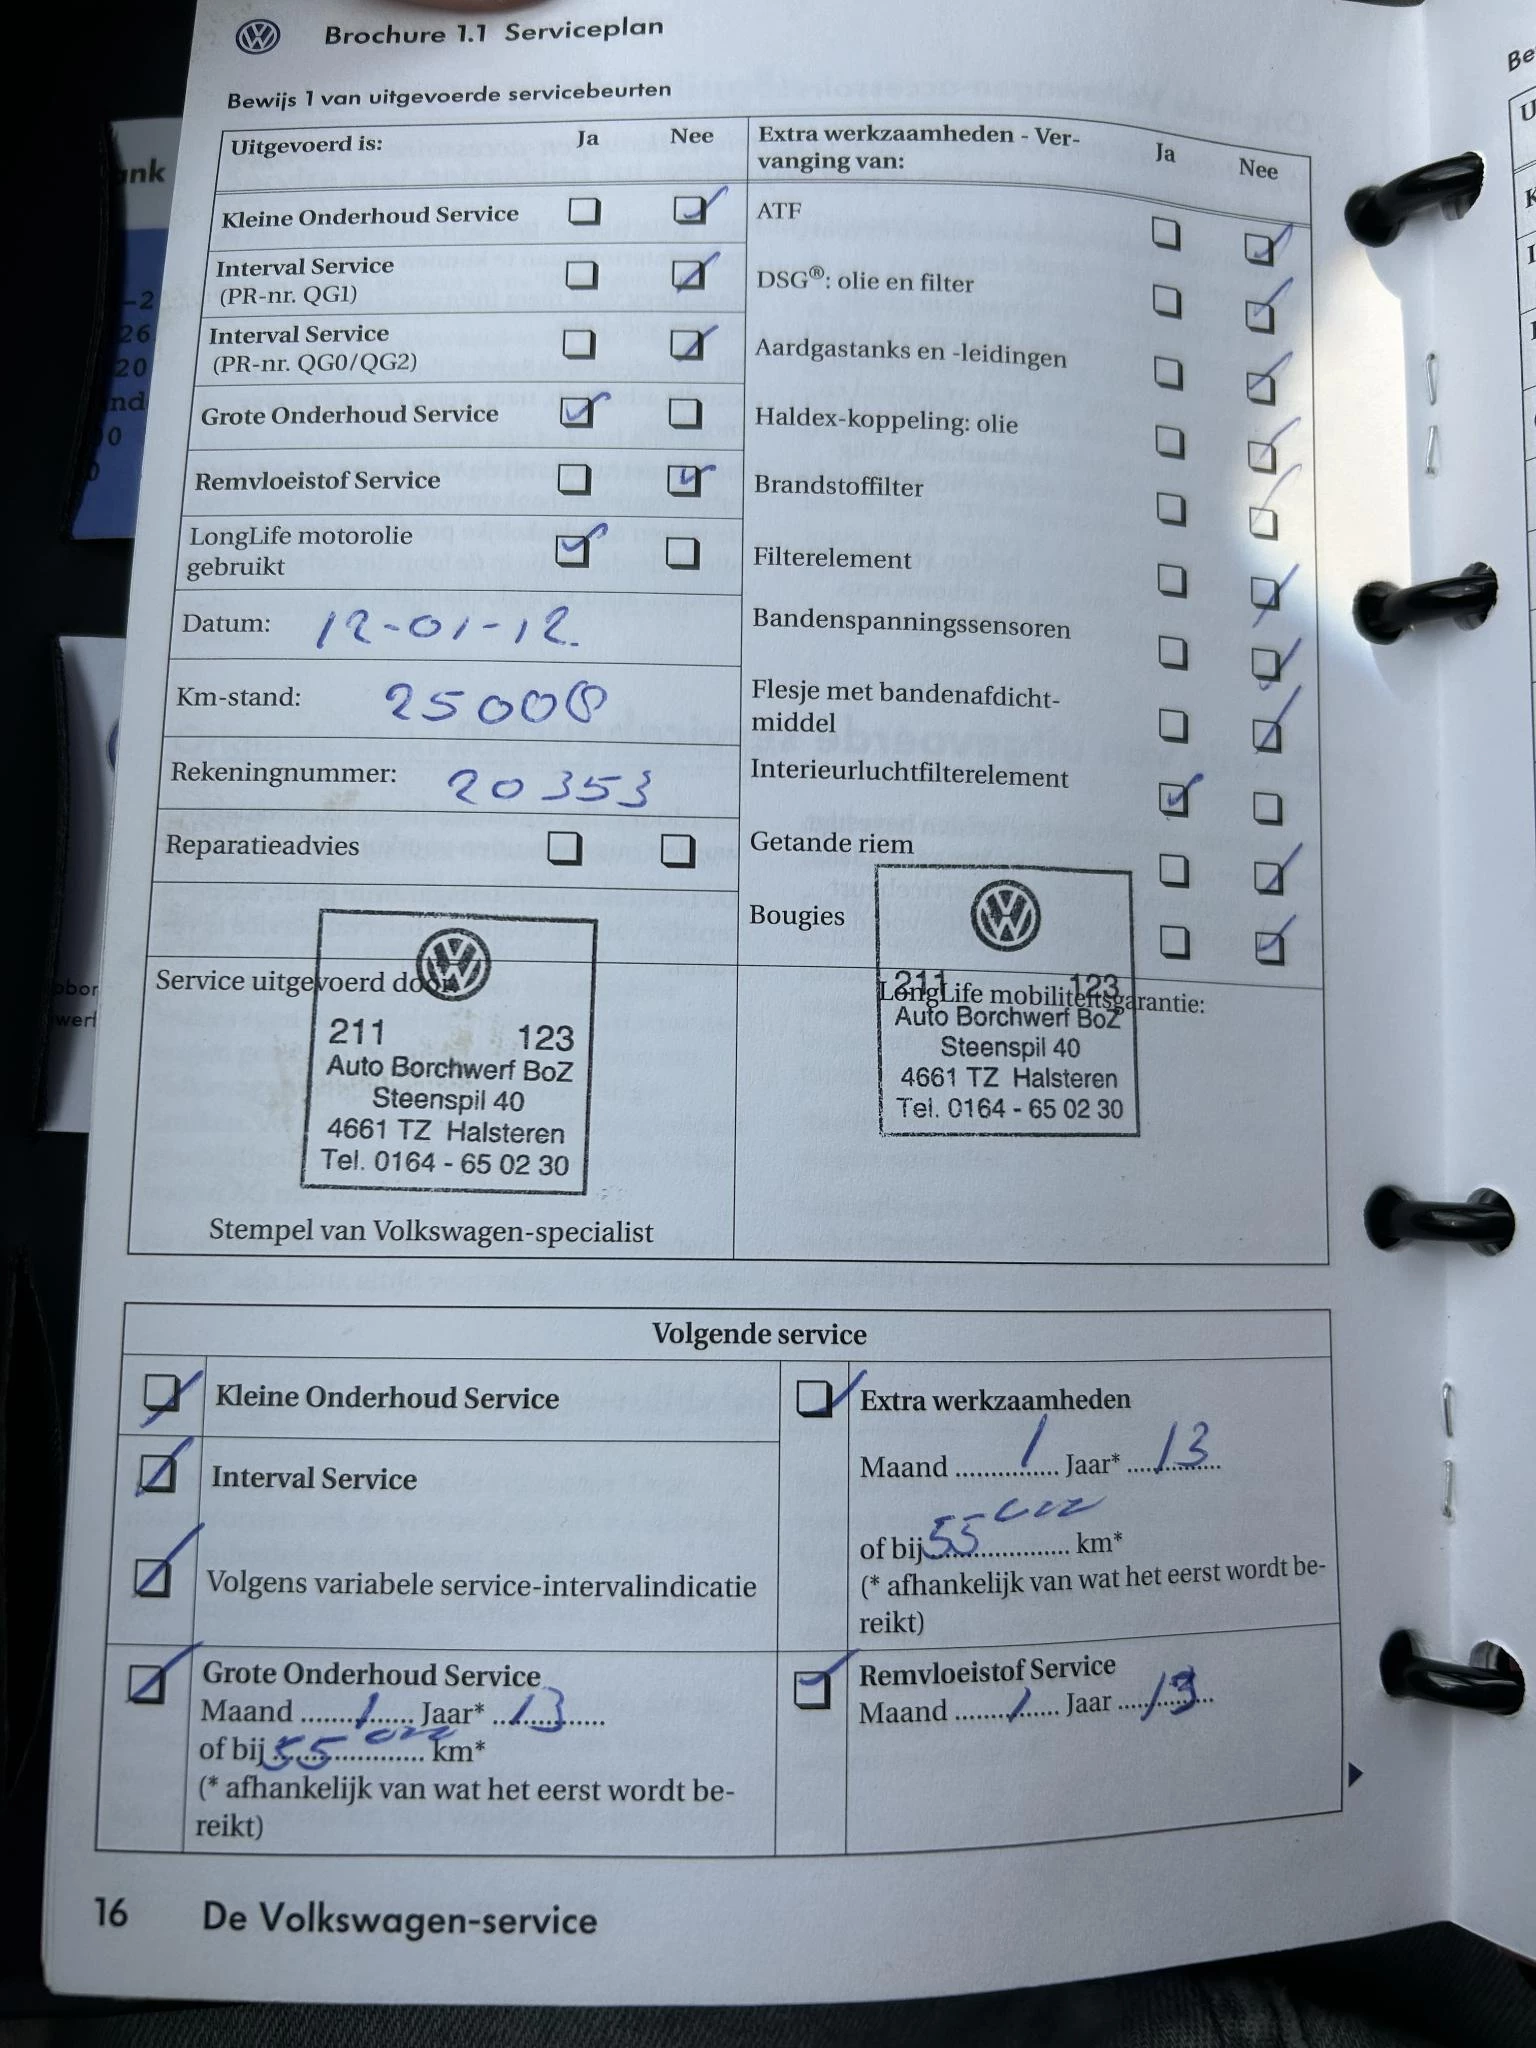 Brochure 1.1 Serviceplan
Bewijs 1 van uitgevoerde servicebeurten
Uitgevoerd is: Ja Nee
Kleine Onderhoud Service
Interval Service
(PR-nr. QG1)
Interval Service
(PR-nr. QG0/QG2)
Grote Onderhoud Service
Remvloeistof Service
LongLife motorolie
gebruikt
Datum: 12-01-12.
Km-stand: 25008
Rekeningnummer: 20353
Reparatieadvies
Service uitgevoerd door
211 123
Auto Borchwerf BoZ
Steenspil 40
4661 TZ Halsteren
Tel. 0164 - 65 02 30
Stempel van Volkswagen-specialist
Extra werkzaamheden - Ver-
vanging van: Ja Nee
ATF
DSG®: olie en filter
Aardgastanks en -leidingen
Haldex-koppeling: olie
Brandstoffilter
Filterelement
Bandenspanningssensoren
Flesje met bandenafdicht-
middel
Interieurluchtfilterelement
Getande riem
Bougies
LongLife mobiliteitsgarantie:
211 123
Auto Borchwerf BoZ
Steenspil 40
4661 TZ Halsteren
Tel. 0164 - 65 02 30
Volgende service
Kleine Onderhoud Service
Interval Service
Volgens variabele service-intervalindicatie
Grote Onderhoud Service
Maand ....1.... Jaar* ..13..........
of bij 55000 km*
(* afhankelijk van wat het eerst wordt be-
reikt)
Extra werkzaamheden
Maand ..........1.... Jaar* ....13......
of bij 55000 km*
(* afhankelijk van wat het eerst wordt be-
reikt)
Remvloeistof Service
Maand ........1...... Jaar ....13......
16 De Volkswagen-service